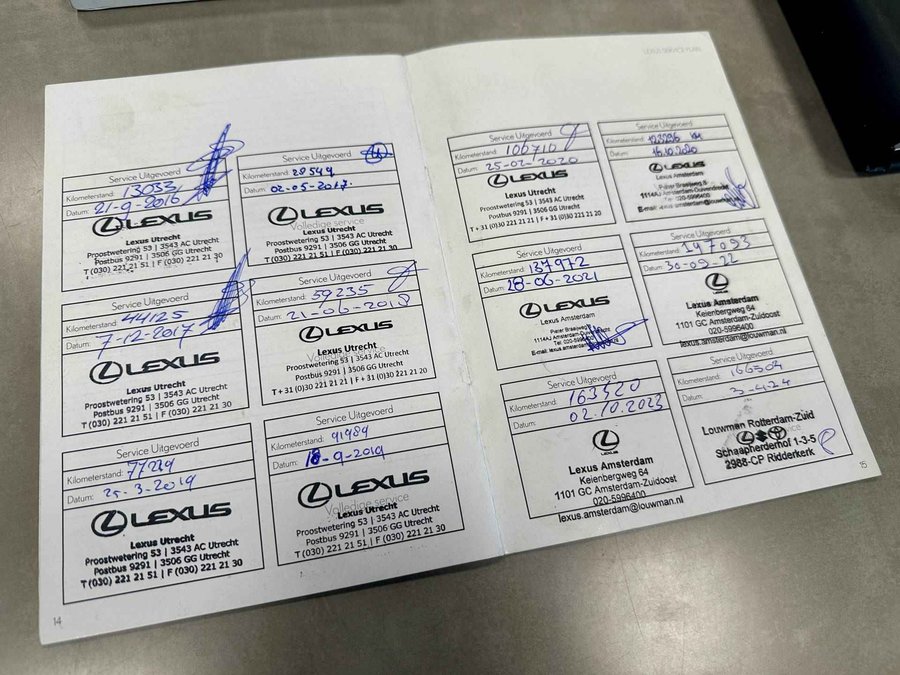 LEXUS SERVICE PLAN
Service Uitgevoerd
Kilometerstand: 13033
Datum: 21-9-2016
LEXUS
Lexus Utrecht
Proostwetering 53 | 3543 AC Utrecht
Postbus 9291 | 3506 GG Utrecht
T (030) 221 21 51 | F (030) 221 21 30
Service Uitgevoerd
Kilometerstand: 28549
Datum: 02-05-2017.
LEXUS
Volledige service
Lexus Utrecht
Proostwetering 53 | 3543 AC Utrecht
Postbus 9291 | 3506 GG Utrecht
T (030) 221 21 51 | F (030) 221 21 30
Service Uitgevoerd
Kilometerstand: 44125
Datum: 7-12-2017
LEXUS
Lexus Utrecht
Proostwetering 53 | 3543 AC Utrecht
Postbus 9291 | 3506 GG Utrecht
T (030) 221 21 51 | F (030) 221 21 30
Service Uitgevoerd
Kilometerstand: 59235
Datum: 21-06-2018
LEXUS
Lexus Utrecht
Proostwetering 53 | 3543 AC Utrecht
Postbus 9291 | 3506 GG Utrecht
T + 31 (0)30 221 21 21 | F + 31 (0)30 221 21 20
Service Uitgevoerd
Kilometerstand:
Datum: 25-3-2019
LEXUS
Lexus Utrecht
Proostwetering 53 | 3543 AC Utrecht
Postbus 9291 | 3506 GG Utrecht
T (030) 221 21 51 | F (030) 221 21 30
Service Uitgevoerd
Kilometerstand: 91984
Datum: 18-9-2019
LEXUS
Volledige service
Lexus Utrecht
Proostwetering 53 | 3543 AC Utrecht
Postbus 9291 | 3506 GG Utrecht
T (030) 221 21 51 | F (030) 221 21 30
14
Service Uitgevoerd
Kilometerstand: 106710
Datum: 25-02-2020
LEXUS
Lexus Utrecht
Proostwetering 53 | 3543 AC Utrecht
Postbus 9291 | 3506 GG Utrecht
T + 31 (0)30 221 21 21 | F + 31 (0)30 221 21 20
Service Uitgevoerd
Kilometerstand: 123296 km
Datum: 16.10.2020
LEXUS
Lexus Amsterdam
Pieter Braaijweg
1114AJ Amsterdam-Duivendrecht
E-mail: lexus.amsterdam@louwman.nl
Service Uitgevoerd
Kilometerstand: 137972
Datum: 28-06-2021
LEXUS
Lexus Amsterdam
Pieter Braaijweg
1114AJ Amsterdam
E-mail: lexus.amsterdam
Service Uitgevoerd
Kilometerstand:
Datum: 30-09-22
Lexus Amsterdam
Keienbergweg 64
1101 GC Amsterdam-Zuidoost
020-5996400
lexus.amsterdam@louwman.nl
Service Uitgevoerd
Kilometerstand: 163520
Datum: 02.10.2023
Lexus Amsterdam
Keienbergweg 64
1101 GC Amsterdam-Zuidoost
020-5996400
lexus.amsterdam@louwman.nl
Service Uitgevoerd
Kilometerstand:
Datum: 3-4-24
Louwman Rotterdam-Zuid
Schaapherderhof 1-3-5
2988-CP Ridderkerk
15